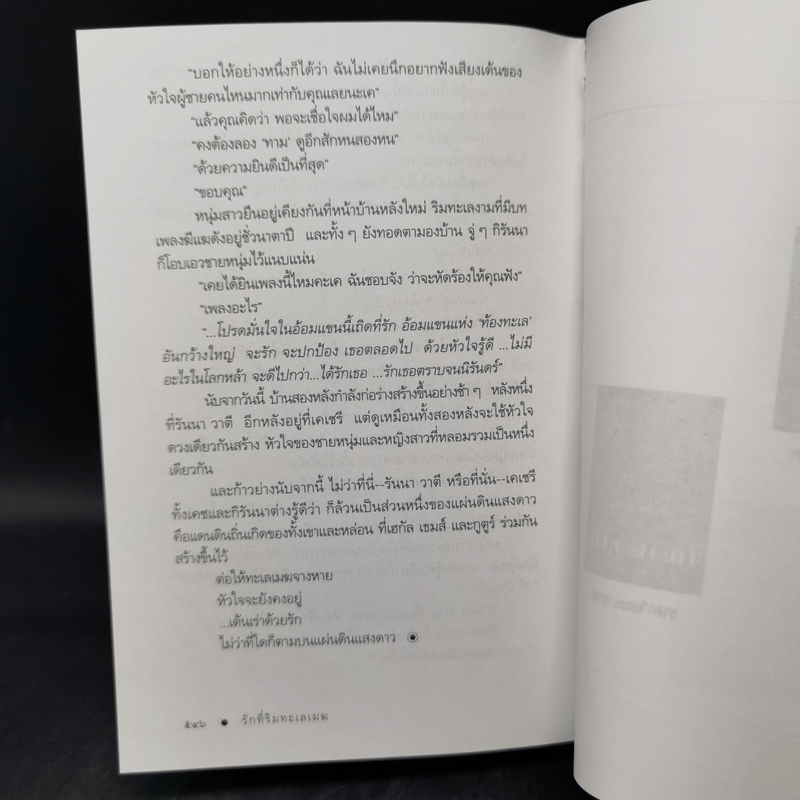 “บอกให้อย่างหนึ่งก็ได้ว่า ฉันไม่เคยนึกอยากฟังเสียงเต้นของ
หัวใจผู้ชายคนไหนมากเท่ากับคุณเลยนะเค”
“แล้วคุณคิดว่า พอจะเชื่อใจผมได้ไหม”
“คงต้องลอง ‘ทาม’ ดูอีกสักหนสองหน”
“ด้วยความยินดีเป็นที่สุด”
“ขอบคุณ”
หนุ่มสาวยืนอยู่เคียงกันที่หน้าบ้านหลังใหม่ ริมทะเลงามที่มีบท
เพลงฆีแฆดังอยู่ชั่วนาตาปี และทั้ง ๆ ยังทอดตามองบ้าน จู่ ๆ กิรันนา
ก็โอบเอวชายหนุ่มไว้แนบแน่น
“เคยได้ยินเพลงนี้ไหมคะเค ฉันชอบจัง ว่าจะหัดร้องให้คุณฟัง”
“เพลงอะไร”
“...โปรดมั่นใจในอ้อมแขนนี้เถิดที่รัก อ้อมแขนแห่ง ‘ท้องทะเล’
อันกว้างใหญ่ จะรัก จะปกป้อง เธอตลอดไป ด้วยหัวใจรู้ดี ...ไม่มี
อะไรในโลกหล้า จะดีไปกว่า...ได้รักเธอ ...รักเธอตราบจนนิรันดร์”
นับจากวันนี้ บ้านสองหลังกำลังก่อร่างสร้างขึ้นอย่างช้า ๆ หลังหนึ่ง
ที่รันนา วาตี อีกหลังอยู่ที่เคเชรี แต่ดูเหมือนทั้งสองหลังจะใช้หัวใจ
ดวงเดียวกันสร้าง หัวใจของชายหนุ่มและหญิงสาวที่หลอมรวมเป็นหนึ่ง
เดียวกัน
และก้าวย่างนับจากนี้ ไม่ว่าที่นี่--รันนา วาตี หรือที่นั่น--เคเชรี
ทั้งเคชและกิรันนาต่างรู้ดีว่า ก็ล้วนเป็นส่วนหนึ่งของแผ่นดินแสงดาว
คือแดนดินถิ่นเกิดของทั้งเขาและหล่อน ที่เฮกัล เธมส์ และกูตูร์ ร่วมกัน
สร้างขึ้นไว้
ต่อให้ทะเลเมฆจางหาย
หัวใจจะยังคงอยู่
...เต้นเร่าด้วยรัก
ไม่ว่าที่ใดก็ตามบนแผ่นดินแสงดาว
๕๔๖ ● รักที่ริมทะเลเมฆ